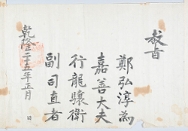 敎旨
鄭弘淳爲
嘉善大夫
行龍驤衛
副司直者
乾隆二十三年正月日